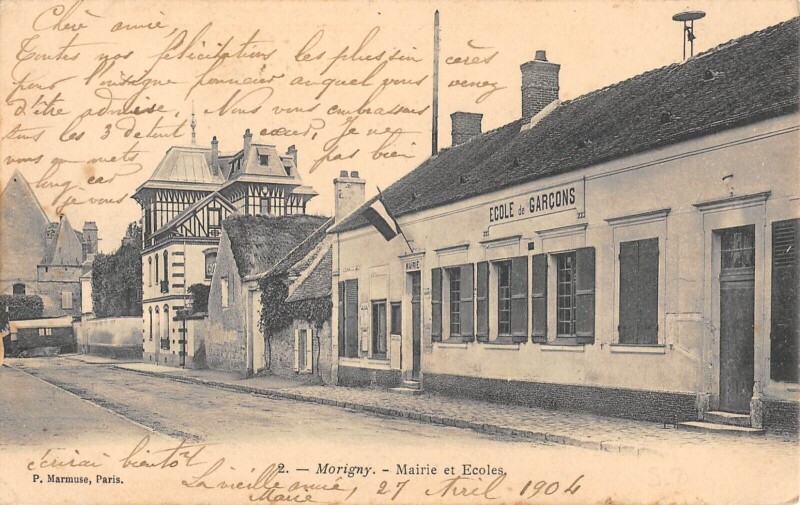 Chère amie,
Toutes nos félicitations les plus sin cères
pour l'insigne auquel vous venez
d'être admise. Nous vous embrassons
tous les 3 de tout cœur, Je ne
vous en mets pas bien
long car
ECOLE de GARÇONS
MAIRIE
écrirai bientôt
2. — Morigny. - Mairie et Ecoles.
P. Marmuse, Paris.
La vieille amie,
Marie, 27 Avril 1904